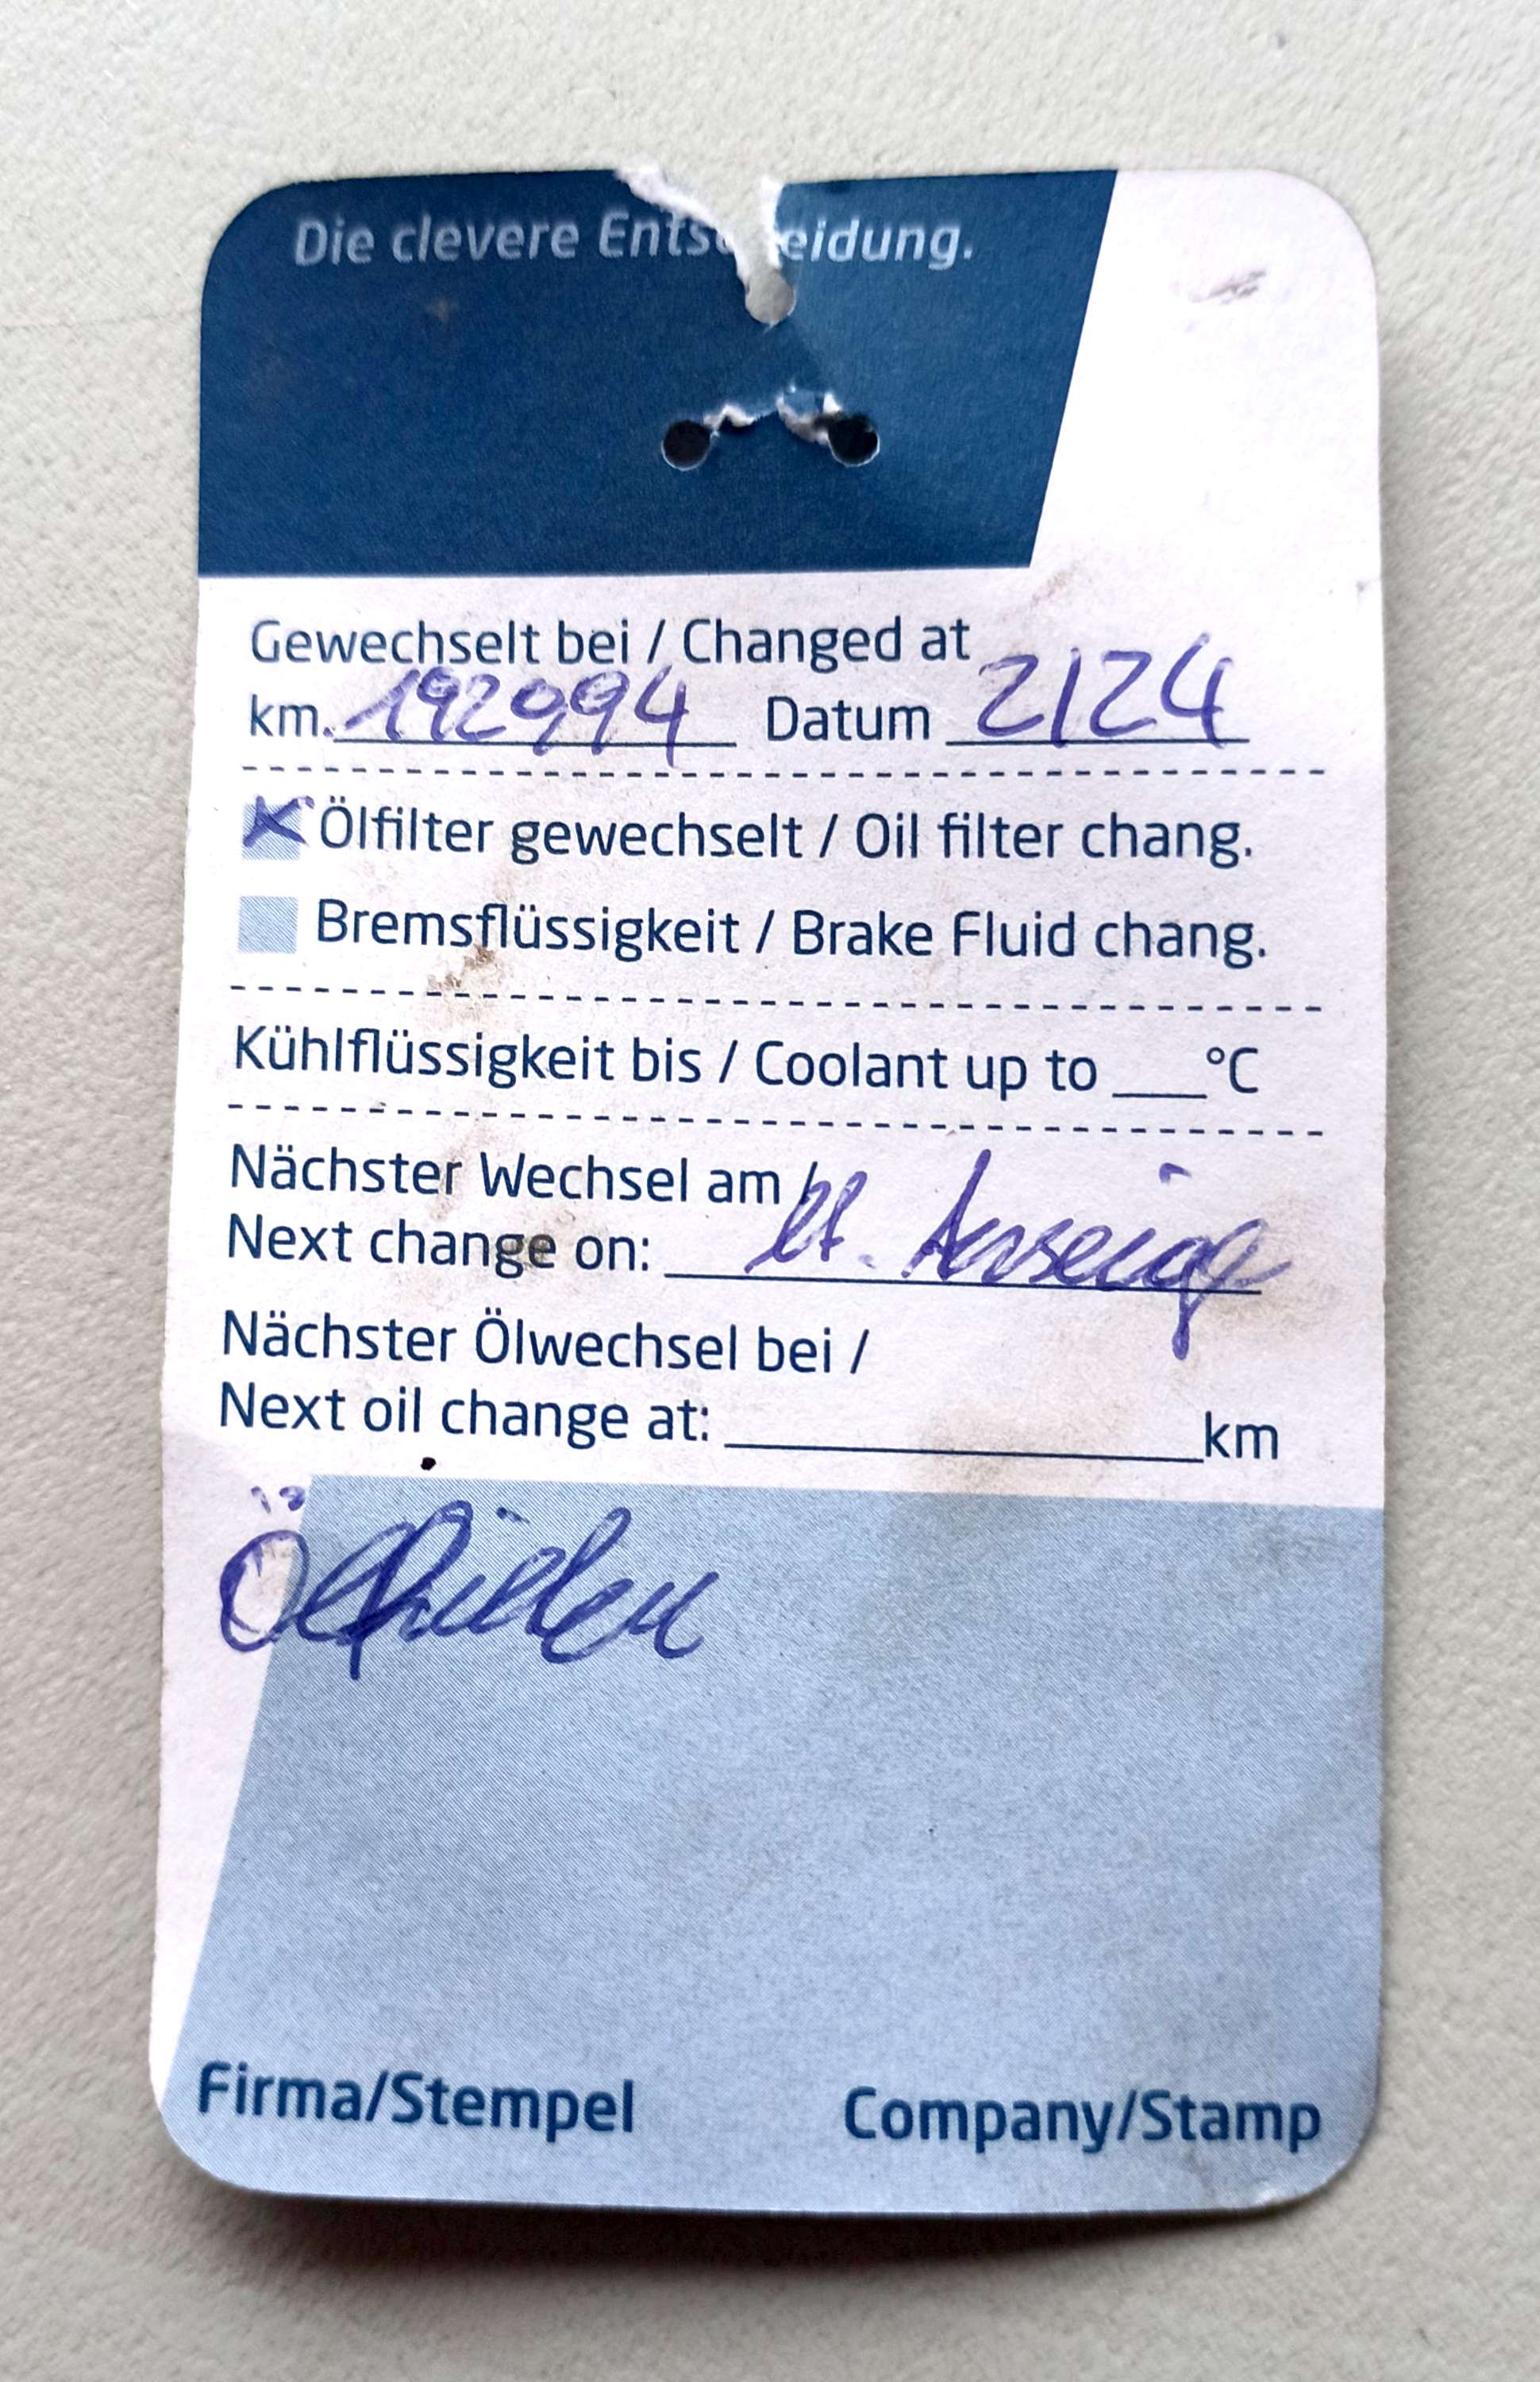 Die clevere Entscheidung.
Gewechselt bei / Changed at
km. 192994 Datum 2/24
Ölfilter gewechselt / Oil filter chang.
Bremsflüssigkeit / Brake Fluid chang.
Kühlflüssigkeit bis / Coolant up to ___°C
Nächster Wechsel am /
Next change on: lt. Anzeige
Nächster Ölwechsel bei /
Next oil change at: ____________km
Firma/Stempel Company/Stamp